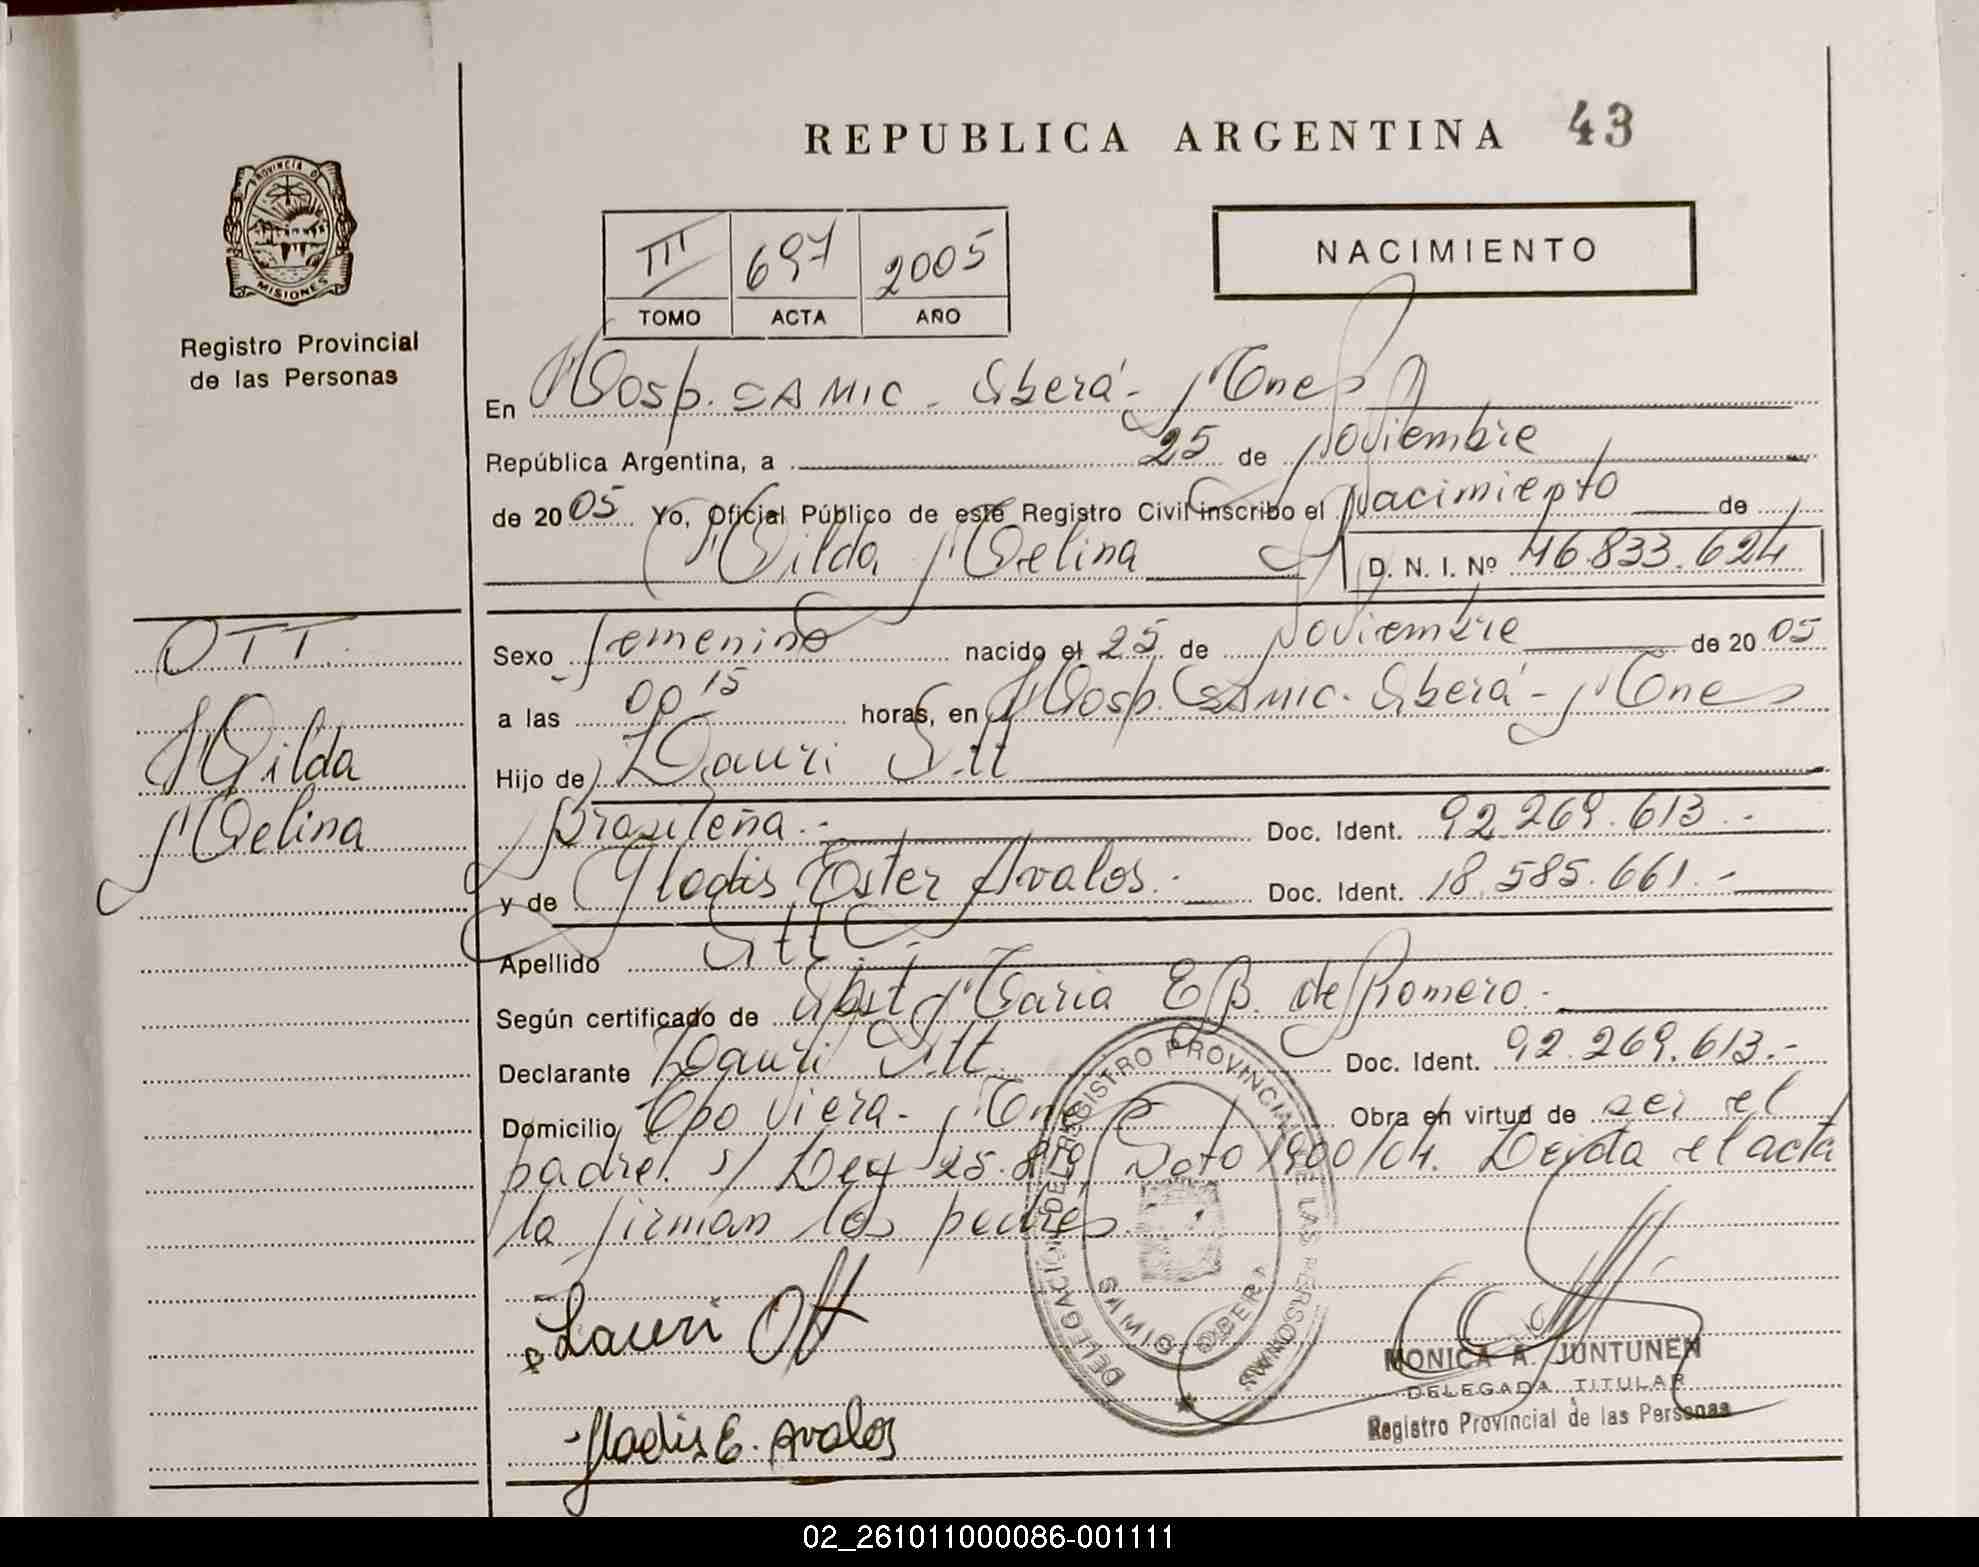 REPUBLICA ARGENTINA 43
PROVINCIA D
MISIONES
Registro Provincial
de las Personas
III 697 2005
TOMO ACTA AÑO
NACIMIENTO
En Hosp. SAMIC - Oberá - Mnes
República Argentina, a 25 de Noviembre
de 2005 Yo, Oficial Público de este Registro Civil inscribo el Nacimiento de
Hilda Melina D. N. I. Nº 46.833.624
OTT
Hilda
Melina
Sexo femenino nacido el 25 de Noviembre de 2005
a las 00 15 horas, en Hosp. SAMIC. Oberá - Mnes
Hijo de Lauri Ott
Brasileña.- Doc. Ident. 92.269.613.-
y de Gladis Ester Avalos.- Doc. Ident. 18.585.661.-
Apellido Ott.-
Según certificado de Obst. Maria E. B. de Romero.-
Declarante Lauri Ott Doc. Ident. 92.269.613.-
Domicilio Cpo Viera - Mnes Obra en virtud de ser el
padre. s/ Ley 25.819 Dcto 1900/04. Leída el acta
la firman los padres.
Lauri Ott
Gladis E. Avalos
DELEGACION DEL REGISTRO PROVINCIAL DE LAS PERSONAS
OBERA
MONICA A. JUNTUNEN
DELEGADA TITULAR
Registro Provincial de las Personas
02_261011000086-001111